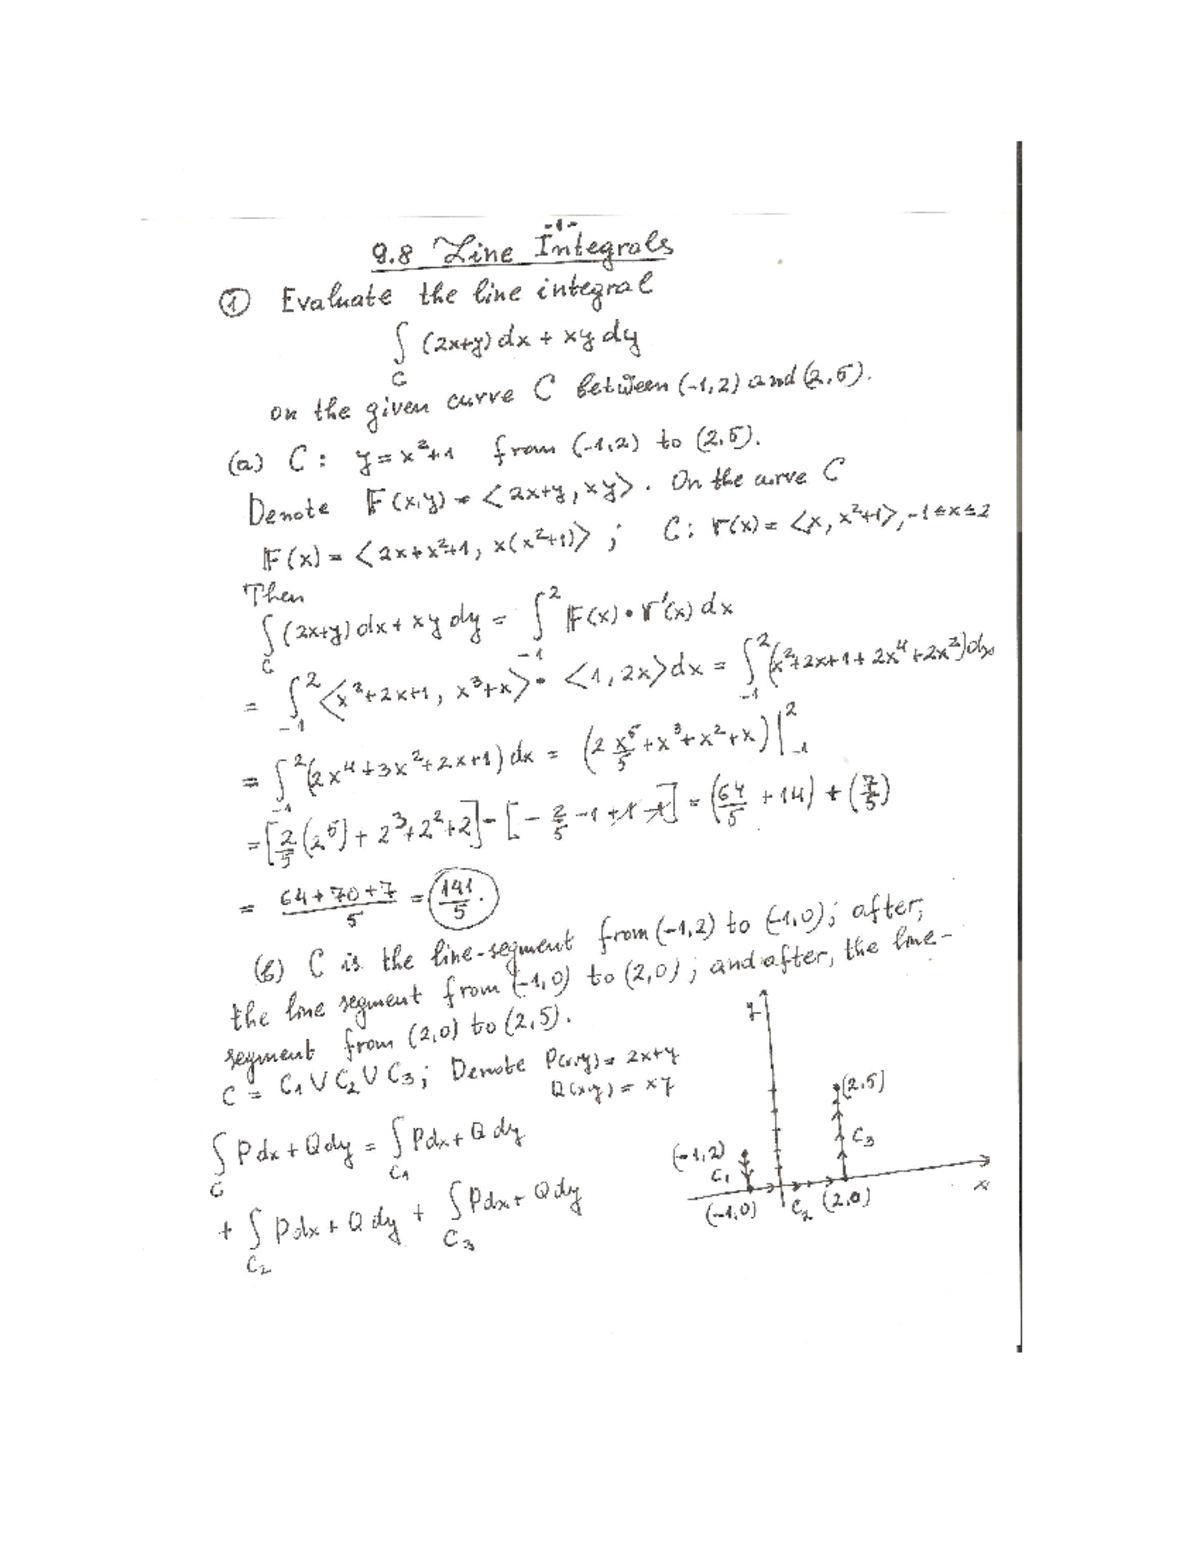 -1-
9.8 Line Integrals
① Evaluate the line integral
∫_C (2x+y) dx + xy dy
on the given curve C between (-1,2) and (2,5).
(a) C: y = x²+1 from (-1,2) to (2,5).
Denote F(x,y) = <2x+y, xy>. On the curve C
F(x) = <2x+x²+1, x(x²+1)>; C: r(x) = <x, x²+1>, -1≤x≤2
Then
∫_C (2x+y) dx + xy dy = ∫_{-1}^{2} F(x)•r'(x) dx
= ∫_{-1}^{2} <x²+2x+1, x³+x>• <1, 2x>dx = ∫_{-1}^{2} (x²+2x+1+2x⁴+2x²)dx
= ∫_{-1}^{2} (2x⁴+3x²+2x+1) dx = (2 x⁵/5 + x³+x²+x)|_{-1}^{2}
= [2/5 (2⁵) + 2³+2²+2] - [-2/5 -1 +1 -1] = (64/5 + 14) + (7/5)
= (64+70+7)/5 = 141/5.
(b) C is the line-segment from (-1,2) to (-1,0); after,
the line segment from (-1,0) to (2,0); and after, the line-
segment from (2,0) to (2,5).
C = C₁ ∪ C₂ ∪ C₃; Denote P(x,y) = 2x+y
Q(x,y) = xy
∫_C Pdx + Qdy = ∫_{C₁} Pdx + Q dy
+ ∫_{C₂} Pdx + Q dy + ∫_{C₃} Pdx + Q dy
y
(2,5)
C₃
(-1,2)
C₁
(-1,0)
C₂
(2,0)
x